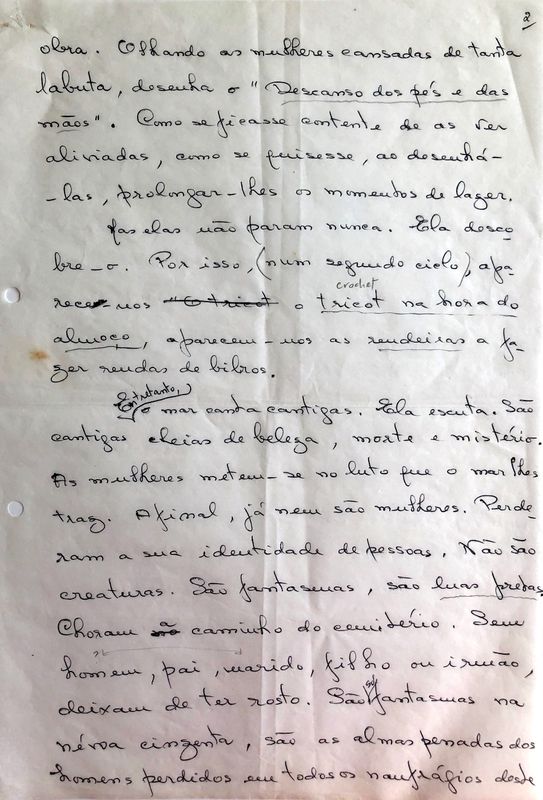 2
obra. Olhando as mulheres cansadas de tanta
labuta, desenha o "Descanso dos pés e das
mãos". Como se ficasse contente de as ver
aliviadas, como se quisesse, ao desenhá-
-las, prolongar-lhes os momentos de lazer.
Mas elas não param nunca. Ela desco
bre-o. Por isso, (num segundo ciclo), apa
crochet
rece-nos "O tricot o tricot na hora do
almoço, aparecem-nos as rendeiras a fa-
zer rendas de bilros.
Entretanto,
o mar canta cantigas. Ela escuta. São
cantigas cheias de beleza, morte e mistério.
As mulheres metem-se no luto que o mar lhes
traz. Afinal, já nem são mulheres. Perde-
ram a sua identidade de pessoas. Não são
creaturas. São fantasmas, são luas pretas.
Choram a caminho do cemitério. Sem
homem, pai, marido, filho ou irmão,
deixam de ter rosto. São só fantasmas na
névoa cinzenta, são as almas penadas dos
homens perdidos em todos os naufrágios deste